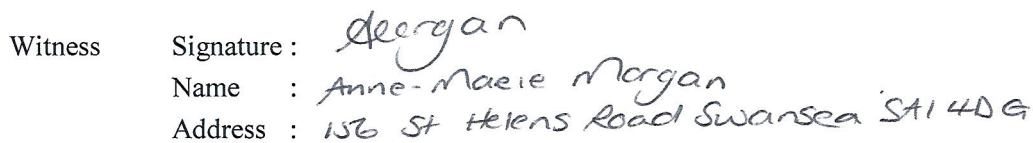 Witness Signature :
Name : Anne-Marie Morgan
Address : 156 St Helens Road Swansea SA1 4DG